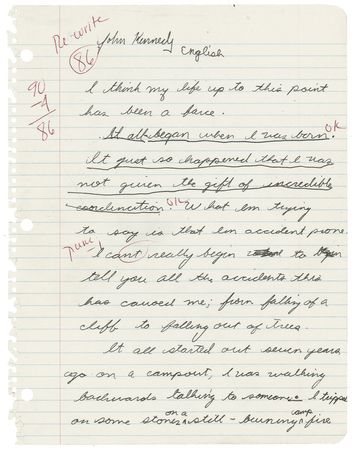 Re-write
John Kennedy
86
English
90
-4
86
I think my life up to this point
has been a farce.
It all began when I was born. OK
It just so happened that I was
not given the gift of incredible
coordination. OK What Im trying
to say is that Im accident prone.
I cant really begin to
tell you all the accidents this
has caused me; from falling of a
cliff to falling out of trees.
It all started out seven years
ago on a campout, I was walking
backwards talking to someone. I tripped
on some stones on a still-burning camp fire